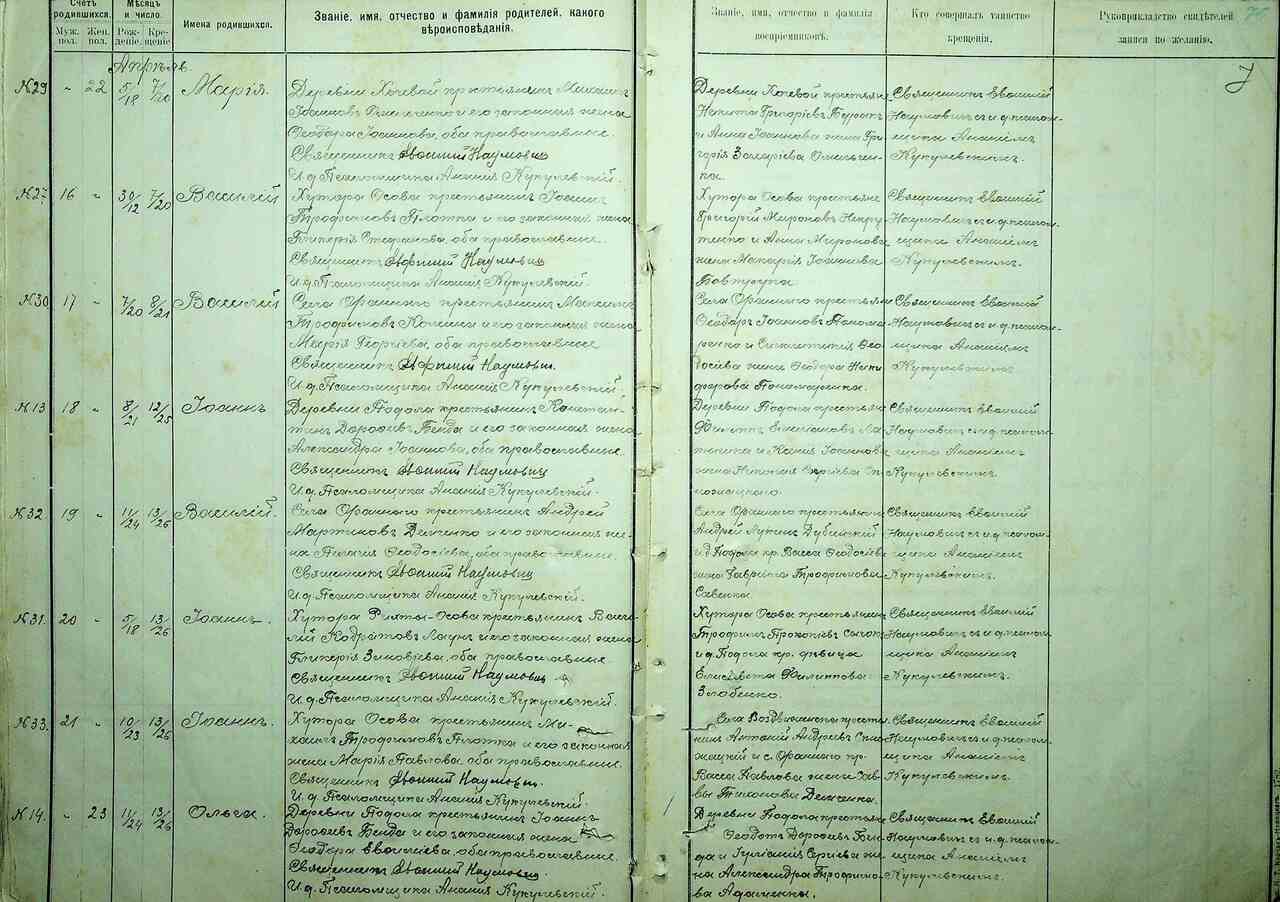 Счетъ родившихся.
Мѣсяцъ и число.
Имена родившихся.
Званіе, имя, отчество и фамилія родителей, какого вѣроисповѣданія.
Муж. пол.
Жен. пол.
Рож- деніе.
Кре- щеніе
Званіе, имя, отчество и фамилія воспріемниковъ.
Кто совершалъ таинство крещенія.
Рукоприкладство свидѣтелей записи по желанію.
Апрѣль.
№29 „ 22 5/18 7/20 Марія.
Деревни крестьянинъ Михаилъ
Іоанновъ и его законная жена
Ѳеодора Іоаннова, оба православные.
Священникъ Наумовичъ
И. д. Псаломщика Ананія Кукулевскій.
Деревни
Никита Григорьевъ
и Анна Іоаннова жена Гри-
горія Захаріева Омельчен-
ка.
Священникъ Евѳимій
Наумовичъ съ и. д. псалом-
щика Ананіемъ
Кукулевскимъ.
№27. 16 „ 30/12 7/20 Василій
Хутора Осова крестьянинъ Іоаннъ
Трофимовъ Плотка и его законная жена
Гликерія Стефанова, оба православные.
Священникъ Наумовичъ
И. д. Псаломщика Ананія Кукулевскій.
Хутора Осова крестьян
Григорій Мироновъ
и Анна Миронова
жена Макарія Іоаннова
Священникъ Евѳимій
Наумовичъ съ и. д. псалом-
щика Ананіемъ
Кукулевскимъ.
№30. 17 „ 7/20 8/21 Василій
Села Ораннаго крестьянинъ Максимъ
Трофимовъ и его законная жена
Марія Георгіева, оба православные
Священникъ Наумовичъ
И. д. Псаломщика Ананія Кукулевскій.
Села Ораннаго крестьян
Ѳеодоръ Іоанновъ Понома-
ренко и Ѳео-
досіева жена Ѳеодора Ники-
форова Пономаренка.
Священникъ Евѳимій
Наумовичъ съ и. д. псалом-
щика Ананіемъ
Кукулевскимъ
№13 18 „ 8/21 12/25 Іоаннъ
Деревни Подола крестьянинъ Констан-
тинъ Дороѳеевъ Бенда и его законная жена
Александра Іоаннова, оба православные.
Священникъ Наумовичъ
И. д. Псаломщика Ананія Кукулевскій.
Деревни Подола крестьян
Филиппъ
и Ксенія Іоаннова
жена Николая Сергіева
Священникъ Евѳимій
Наумовичъ съ и. д. псалом-
щика Ананіемъ
Кукулевскимъ
№32. 19 „ 11/24 13/26 Василій.
Села Ораннаго крестьянинъ Андрей
Мартиновъ Деченко и его законная же-
на Пелагія Ѳеодосіева, оба православные.
Священникъ Наумовичъ
И. д. Псаломщика Ананія Кукулевскій.
Села Ораннаго крестьян
Андрей Лукинъ Дубинскій
и д. Подола кр. Васса Ѳеодосіева
жена Гавріила Трофимова
Савенка.
Священникъ Евѳимій
Наумовичъ съ и. д. псалом-
щика Ананіемъ
Кукулевскимъ.
№31. 20 „ 5/18 13/26 Іоаннъ.
Хутора крестьянинъ Васи-
лій Кодратовъ и его законная жена
Гликерія Зиновіева, оба православные.
Священникъ Наумовичъ
И. д. Псаломщика Ананія Кукулевскій.
Хутора Осова крестьянин
Трофимъ Прокопіевъ
и д. Подола кр. дѣвица
Елисавета Филиппова
Злобенко.
Священникъ Евѳимій
Наумовичъ съ и. д. псалом-
щика Ананіемъ
Кукулевскимъ.
№33. 21 „ 10/23 13/26 Іоаннъ.
Хутора Осова крестьянинъ Ми-
хаилъ Трофимовъ Плотка и его законная
жена Марія Павлова, оба православные.
Священникъ Наумовичъ.
И. д. Псаломщика Ананія Кукулевскій.
Села Воздвиженска крестья-
нинъ Антоній Андреевъ
и с. Ораннаго кр.
Васса Павлова жена Сав-
вы Тихонова Деченка.
Священникъ Евѳимій
Наумовичъ съ и. д. псалом-
щика Ананіемъ
Кукулевскимъ.
№14. „ 23 11/24 13/26 Ольга.
Деревни Подола крестьянинъ Іоаннъ
Дороѳеевъ Бенда и его законная жена
Ѳеодора оба православные.
Священникъ Наумовичъ.
И. д. Псаломщика Ананія Кукулевскій.
Деревни Подола крестьян
Ѳеодотъ Дороѳеевъ Бен-
да и Іуліанія Сергіева же-
на Александра Трофимо-
ва Адаменка.
Священникъ Евѳимій
Наумовичъ съ и. д. псалом-
щика Ананіемъ
Кукулевскимъ.